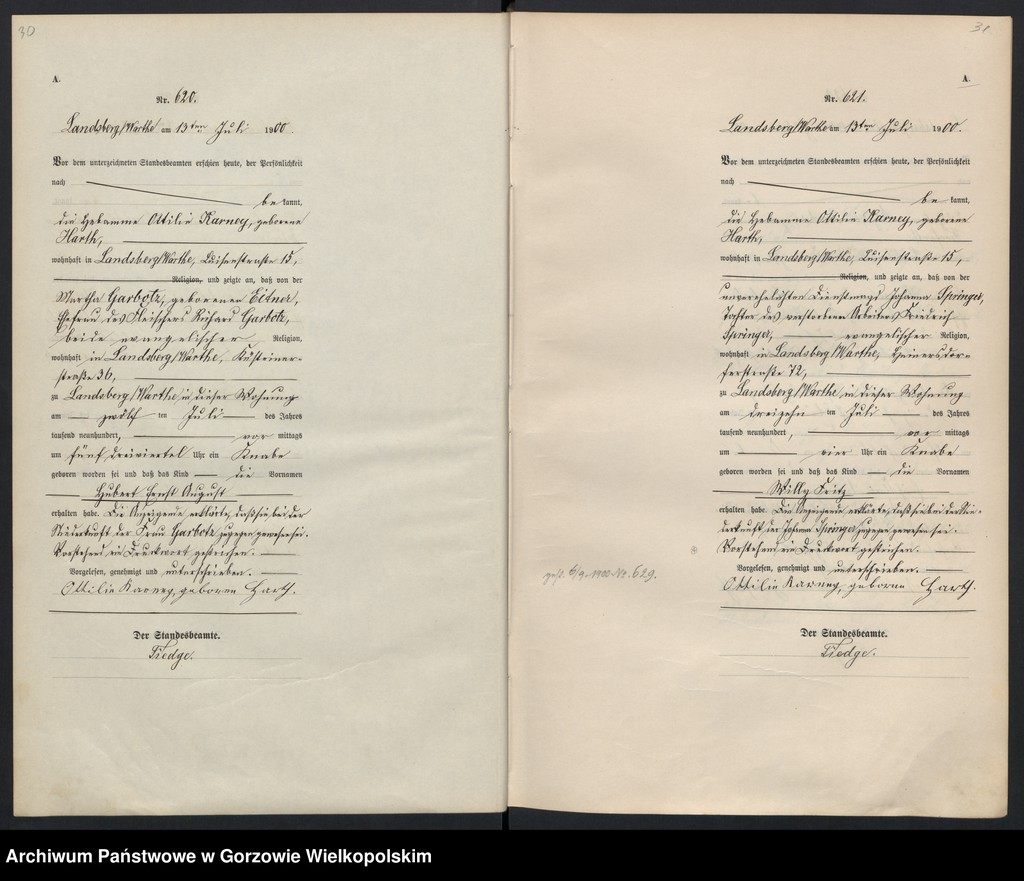 30
A.
Nr. 620.
Landsberg/Warthe am 13ten Juli 1900.
Vor dem unterzeichneten Standesbeamten erschien heute, der Persönlichkeit
nach
be kannt,
die Hebamme Ottilie Karney, geborene
Harth,
wohnhaft in Landsberg/Warthe, Luisenstraße 15,
Religion, und zeigte an, daß von der
Martha Garbotz, geborenen Eitner,
Ehefrau des Fleischers Richard Garbotz,
beide evangelischer Religion,
wohnhaft in Landsberg/Warthe, Küstriner-
straße 36,
zu Landsberg/Warthe in dieser Wohnung
am zwölf ten Juli des Jahres
tausend neunhundert, vor mittags
um fünf dreiviertel Uhr ein Knabe
geboren worden sei und daß das Kind die Vornamen
Hubert Ernst August
erhalten habe. Die Anzeigende erklärte, daß sie bei der
Niederkunft der Frau Garbotz zugegen gewesen sei.
Vorstehend ein Druckwort gestrichen.
Vorgelesen, genehmigt und unterschrieben.
Ottilie Karney, geborene Harth.
Der Standesbeamte.
Tiedge.
31
A.
Nr. 621.
Landsberg/Warthe am 13ten Juli 1900.
Vor dem unterzeichneten Standesbeamten erschien heute, der Persönlichkeit
nach
be kannt,
die Hebamme Ottilie Karney, geborene
Harth,
wohnhaft in Landsberg/Warthe, Luisenstraße 15,
Religion, und zeigte an, daß von der
unverehelichten Dienstmagd Johanna Springer,
Tochter des verstorbenen Arbeiters Friedrich
Springer, evangelischer Religion,
wohnhaft in Landsberg/Warthe, Heinersdor-
ferstraße 72,
zu Landsberg/Warthe in dieser Wohnung
am dreizehn ten Juli des Jahres
tausend neunhundert, vor mittags
um vier Uhr ein Knabe
geboren worden sei und daß das Kind die Vornamen
Willy Fritz
erhalten habe. Die Anzeigende erklärte, daß sie bei der Nie-
derkunft der Johanna Springer zugegen gewesen sei.
Vorstehend ein Druckwort gestrichen.
Vorgelesen, genehmigt und unterschrieben.
Ottilie Karney, geborene Harth.
Der Standesbeamte.
Tiedge.
6/9. 1900 Nr. 629.
Archiwum Państwowe w Gorzowie Wielkopolskim